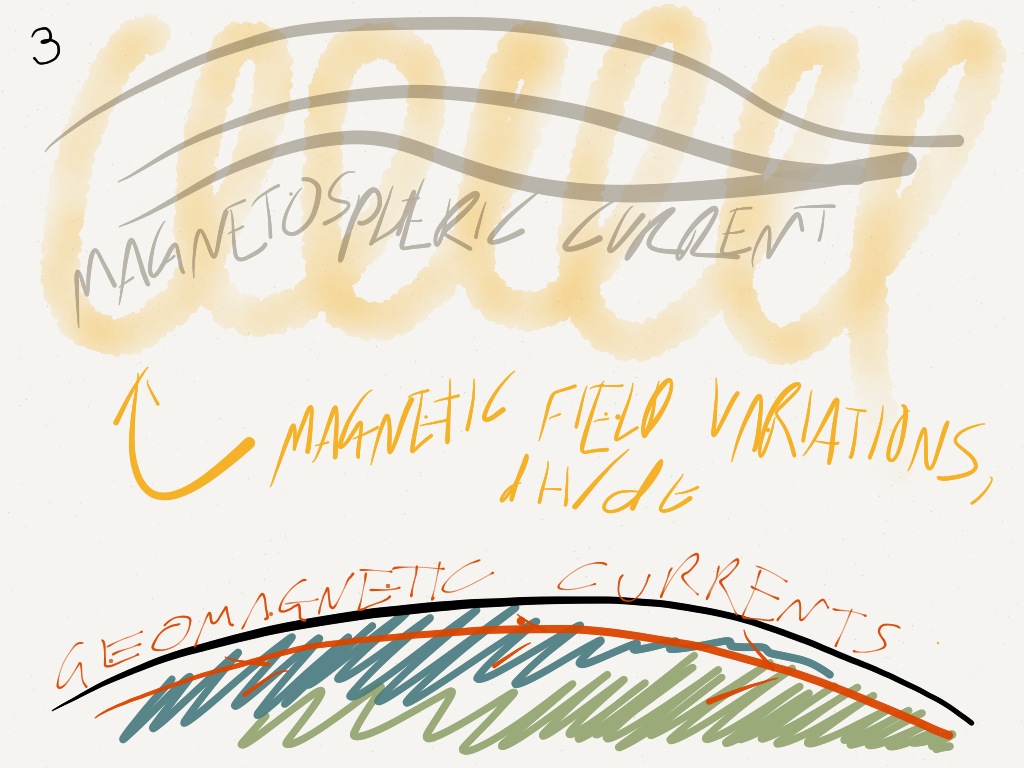 3
MAGNETOSPHERIC CURRENT
MAGNETIC FIELD VARIATIONS,
dH/dt
GEOMAGNETIC CURRENTS